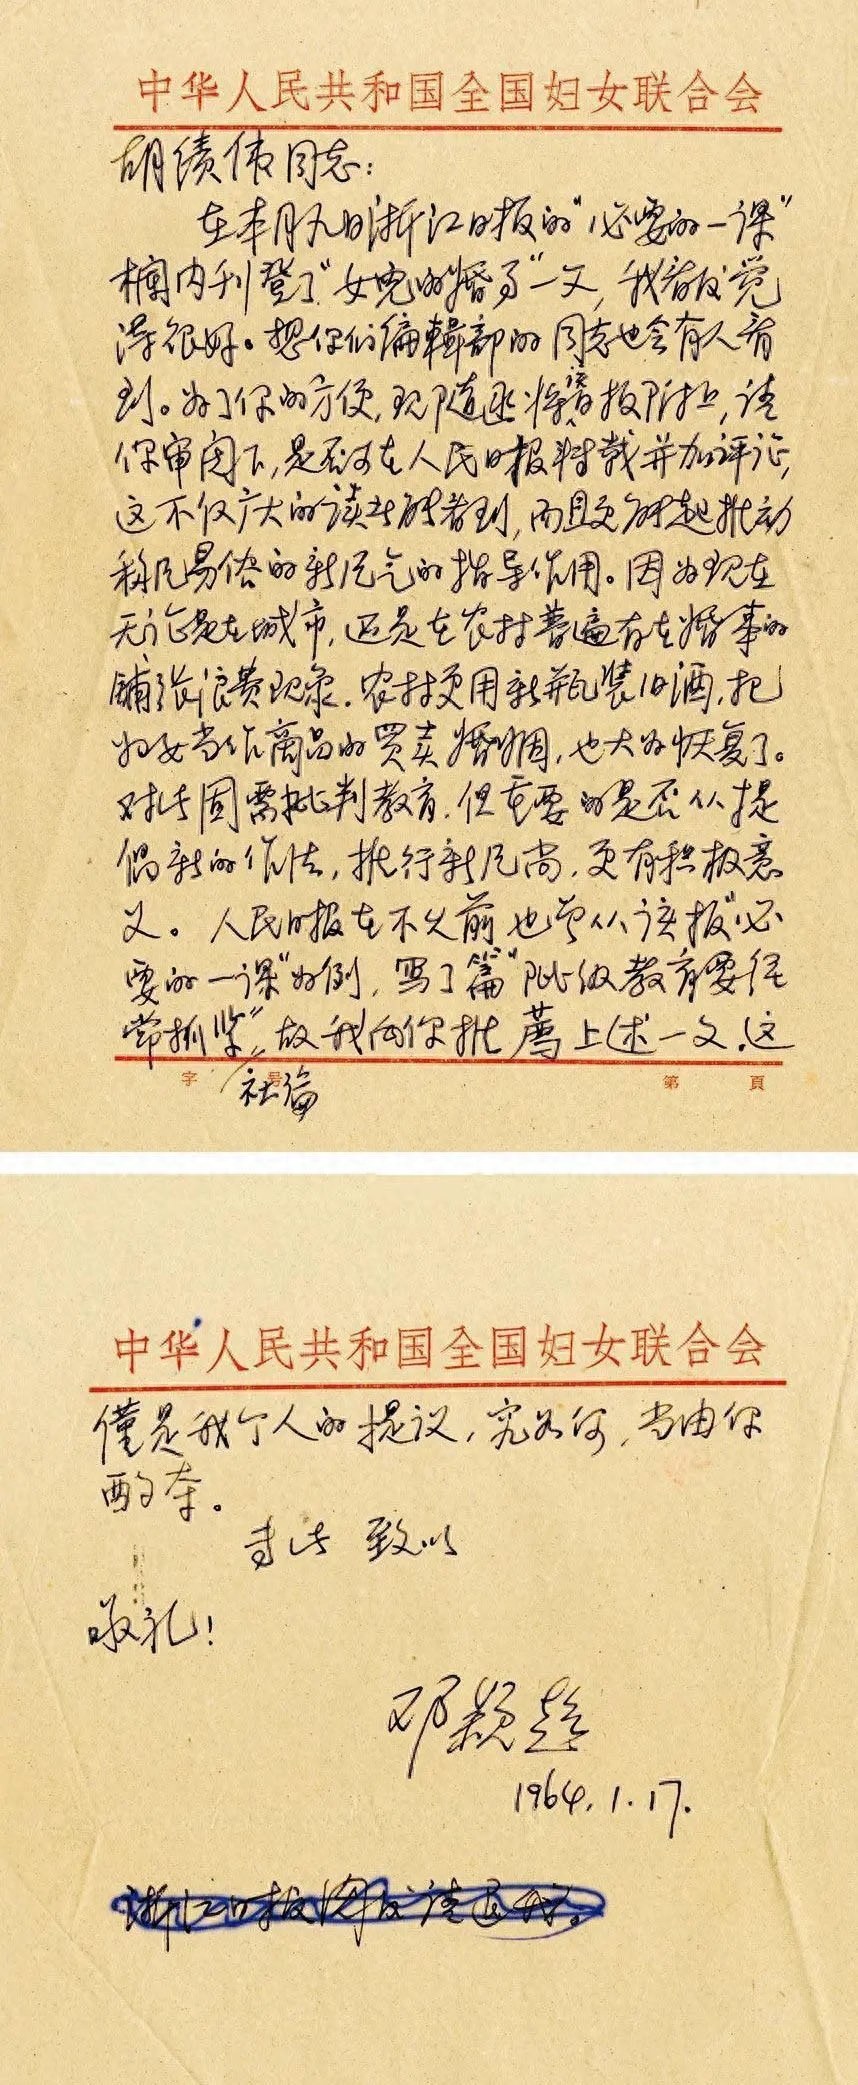 中华人民共和国全国妇女联合会
胡绩伟同志：
在本月九日浙江日报的“必要的一课”
栏内刊登了“女儿的婚事”一文，我看后觉
得很好。想你们编辑部的同志也会有人看
到。为了你的方便，现随函将该日报附上，请
你审阅下，是否可在人民日报转载并加评论，
这不仅广大的读者能看到，而且更能起推动
移风易俗的新风气的指导作用。因为现在
无论是在城市，还是在农村普遍存在婚事的
铺张浪费现象。农村更用新瓶装旧酒，把
妇女当作商品的买卖婚姻，也大为恢复了。
对此固需批判教育，但重要的是否从提
倡新的作法，推行新风尚，更有积极意
义。人民日报在不久前也曾从该报“必
要的一课”为例，写了篇“阶级教育要经
常抓紧”，故我向你推荐上述一文，这
社论
字 号 第 頁
中华人民共和国全国妇女联合会
僅是我个人的提议，究如何，当由你
酌夺。
专此 致以
敬礼！
邓颖超
1964.1.17.
浙江日报阅后请退我。